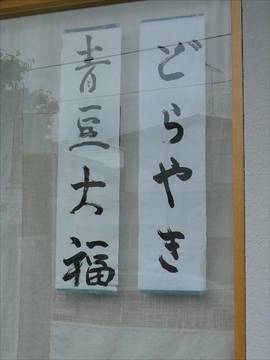 どらやき
青豆大福